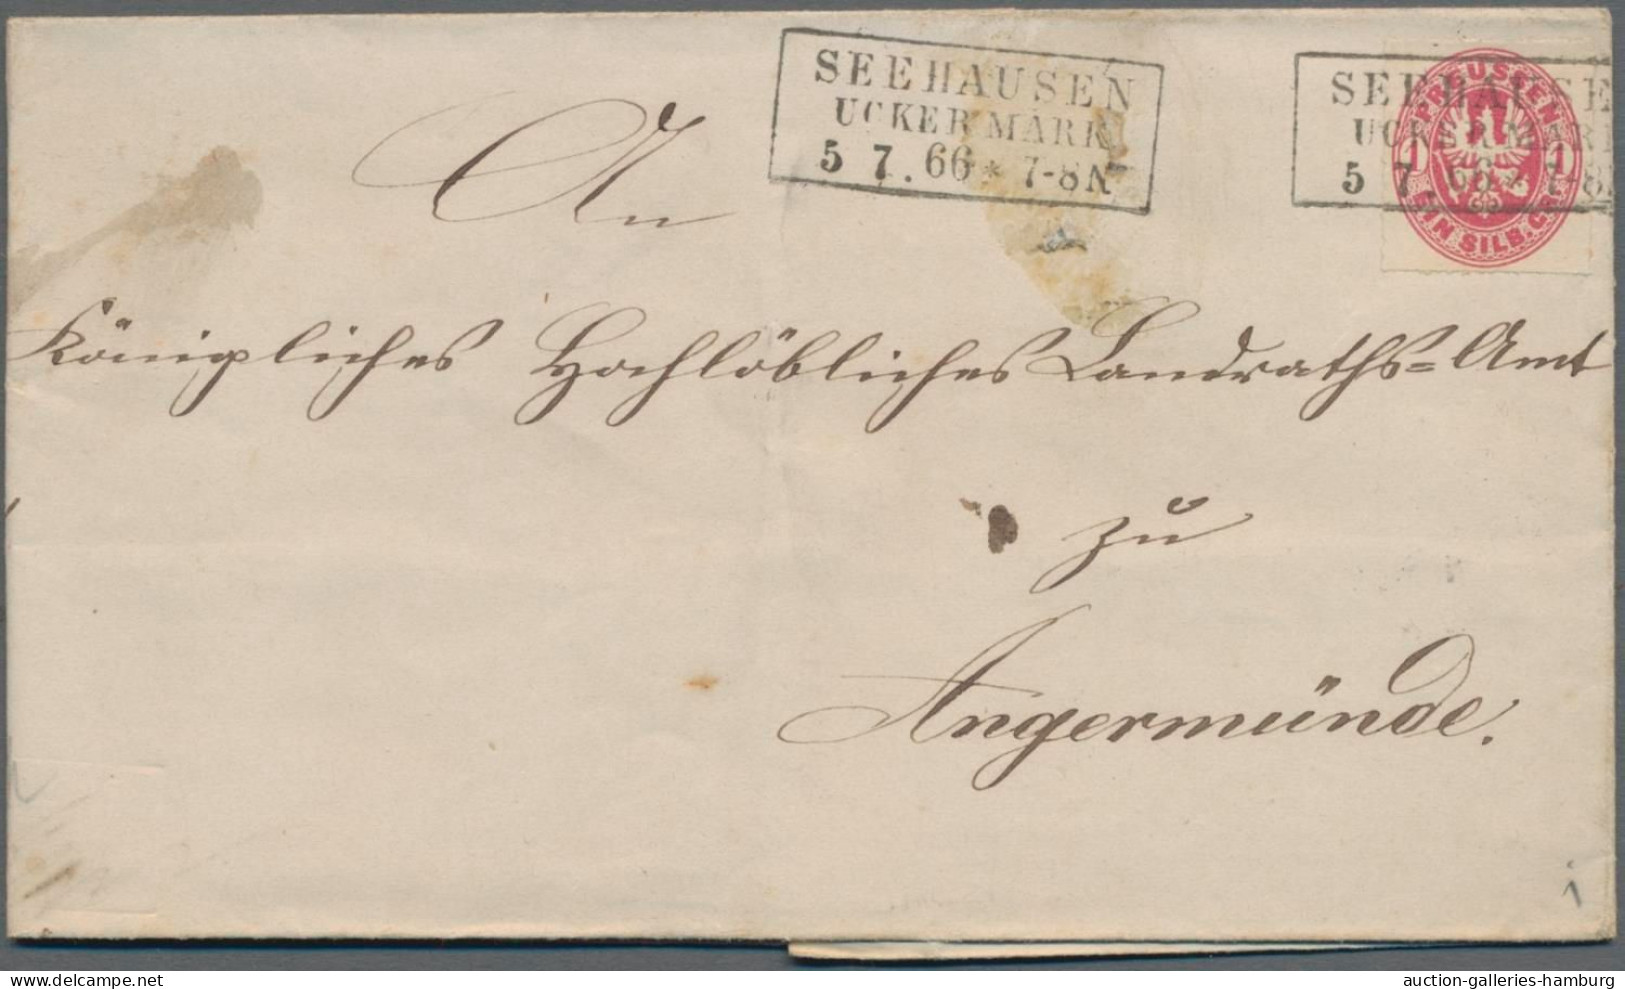 SEEHAUSEN
UCKERMARK
5 7. 66 * 7-8 N
SEEHAUSE
UCKERMARK
5 7. 66 * 7-8
PREUSSEN
1 1
EIN SILB. GR.
An
Königliches Hochlöbliches Landraths=Amt
zu
Angermünde.
auction-galleries-hamburg